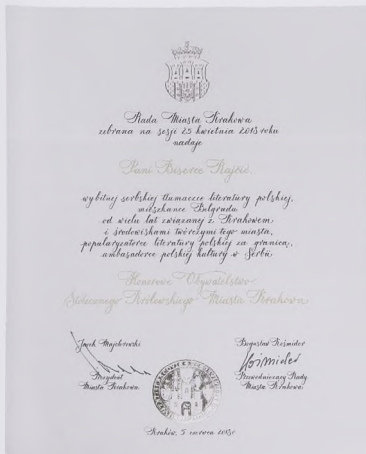 Rada Miasta Krakowa
zebrana na sesji 25 kwietnia 2018 roku
nadaje
Pani Biserce Rajčić
wybitnej serbskiej tłumaczce literatury polskiej,
mieszkance Belgradu
od wielu lat związanej z Krakowem
i środowiskami twórczymi tego miasta,
popularyzatorce literatury polskiej za granicą,
ambasadorce polskiej kultury w Serbii
Honorowe Obywatelstwo
Stołecznego Królewskiego Miasta Krakowa
Jacek Majchrowski
Prezydent
Miasta Krakowa
Bogusław Kośmider
Kośmider
Przewodniczący Rady
Miasta Krakowa
Kraków, 5 czerwca 2018r